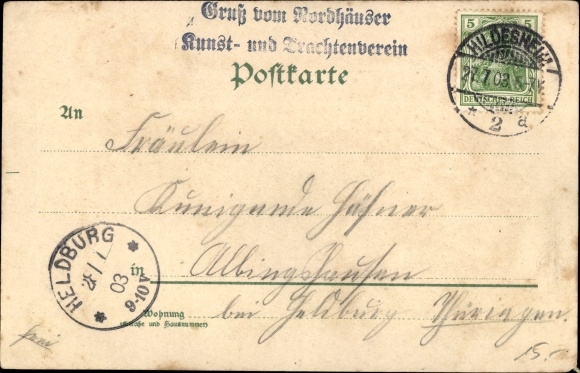 Gruß vom Nordhäuser
Kunst- und Trachtenverein
Postkarte
5 5
DEUTSCHES REICH
HILDESHEIM
21.7.03
* 2 a
An
Fräulein
Kunigunde Häfner
in Albingshausen
bei Heldburg Thüringen.
HELDBURG
7
03
9-10V
Wohnung
(Straße und Hausnummer)
15.